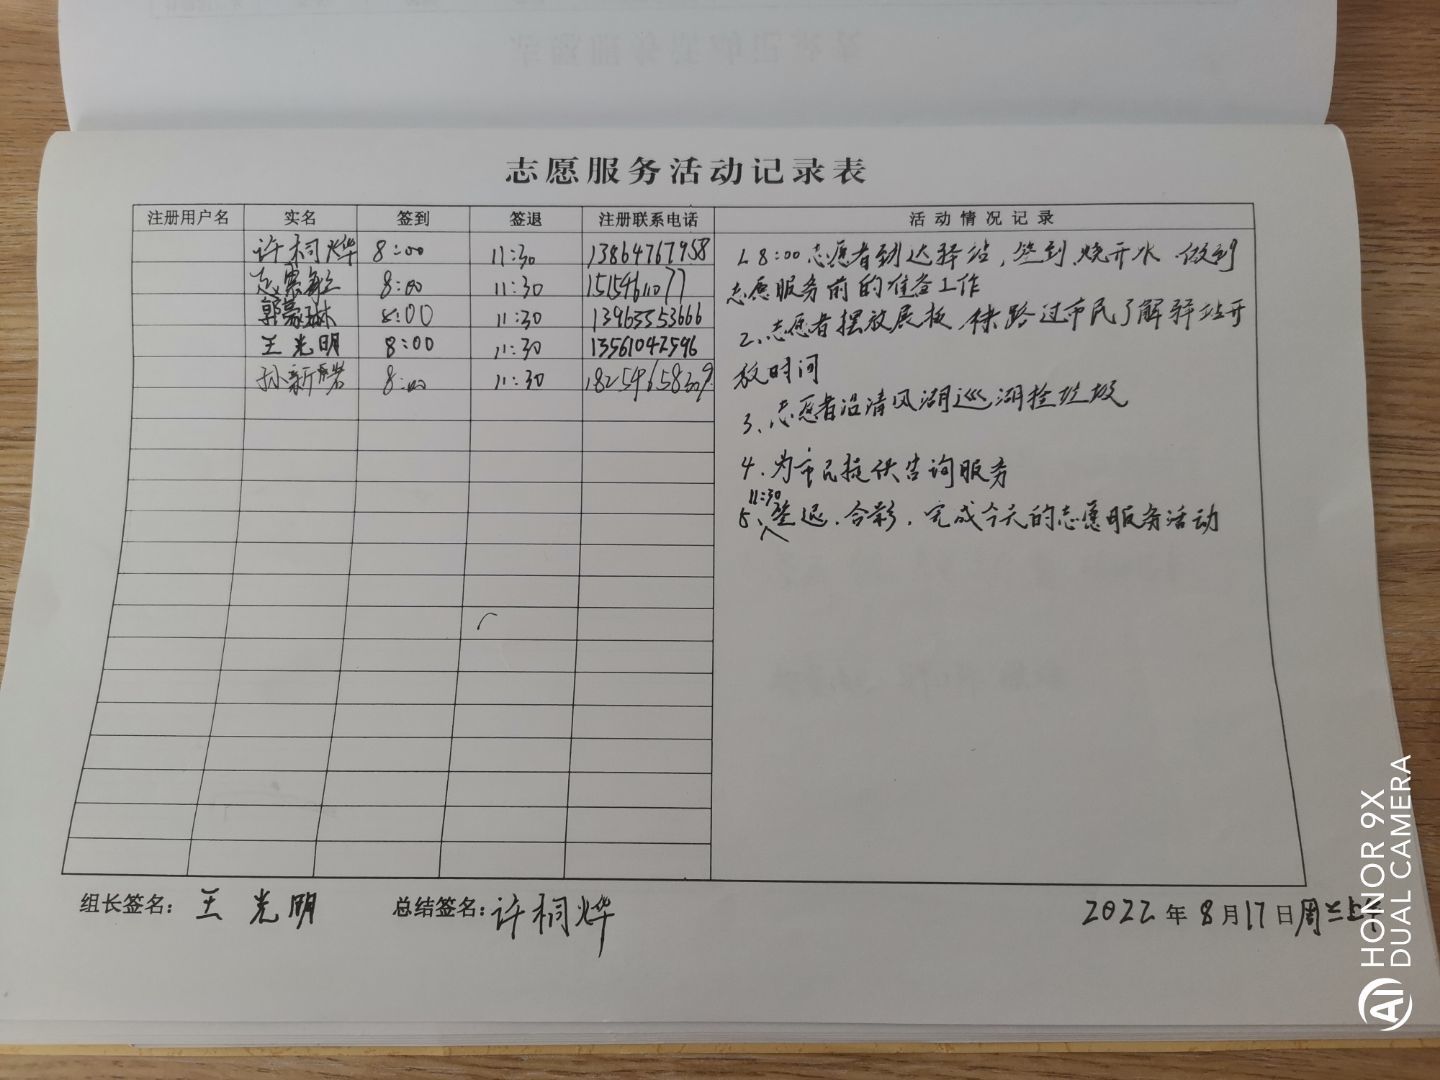 志愿服务活动记录表
注册用户名 实名 签到 签退 注册联系电话 活动情况记录
许桐烨 8:00 11:30 13864767958
8:00 11:30 15154611077
郭蒙琳 8:00 11:30 13963553666
王光明 8:00 11:30 13561042596
孙新岩 8:00 11:30 18254658309
1. 8:00志愿者到达驿站,签到 烧开水 做到
志愿服务前的准备工作
2、志愿者摆放展板 供路过市民了解驿站开
放时间
3、志愿者沿清风湖巡湖捡垃圾
4、为市民提供咨询服务
11:30
5、签退、合影,完成今天的志愿服务活动
组长签名: 王光明 总结签名: 许桐烨 2022年8月17日周三上午
HONOR 9X
DUAL CAMERA
AI